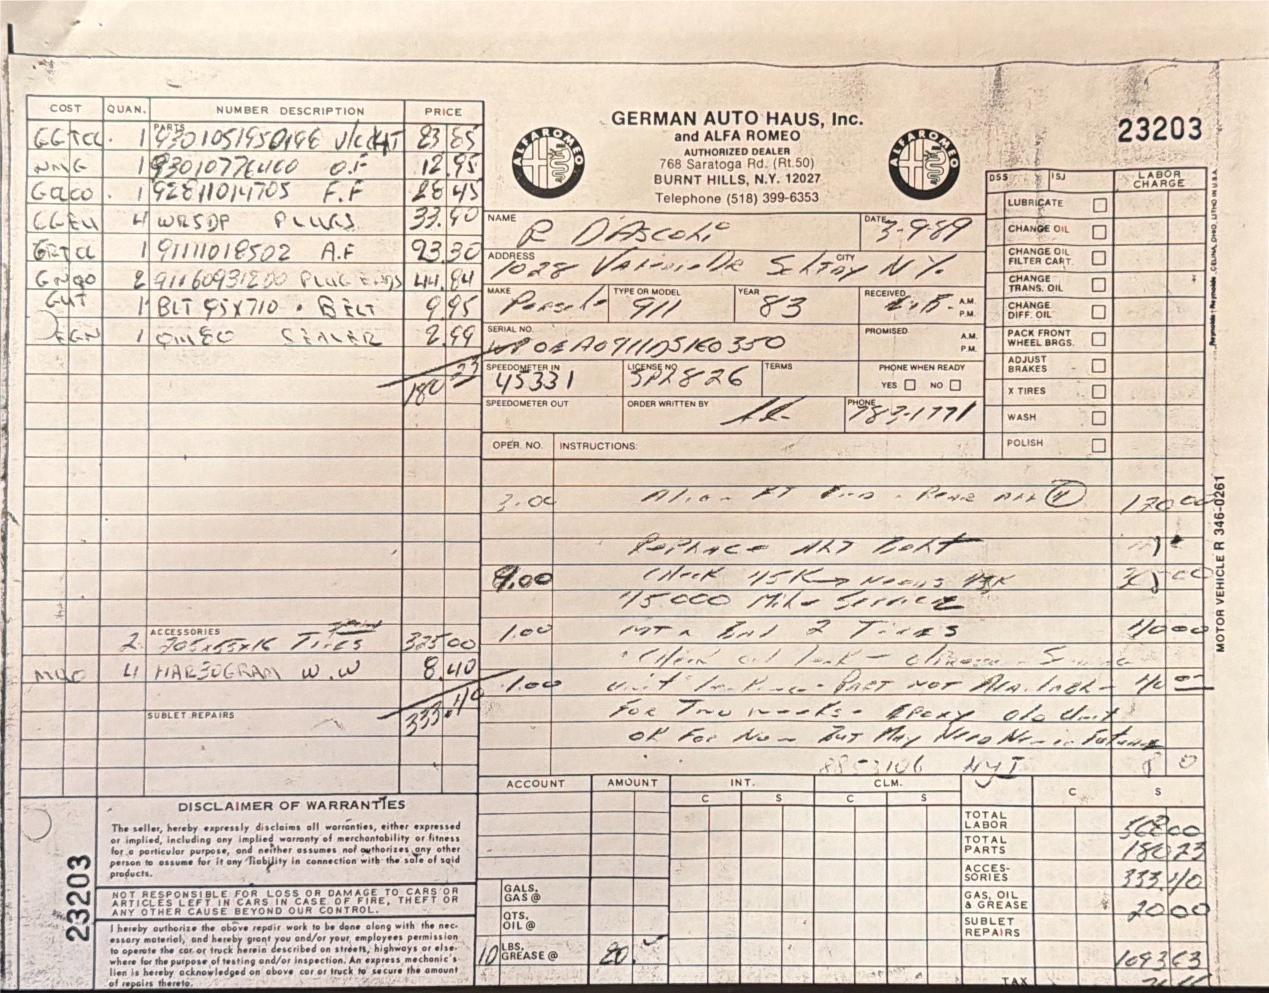 COST QUAN. NUMBER DESCRIPTION PRICE
PARTS
1 V/C KIT 23 85
1 O.F 12.95
1 92811014705 F.F 28.45
4 WR5DP PLUGS 33.40
1 91111018502 A.F 23.30
2 PLUG ENDS 44.84
1 BLT 95X710 · BELT 9.95
1 SEALER 2.99
180 23
ACCESSORIES
2 205x55x16 TIRES 325 00
4 W.W 8.40
333.40
SUBLET REPAIRS
DISCLAIMER OF WARRANTIES
The seller, hereby expressly disclaims all warranties, either expressed
or implied, including any implied warranty of merchantability or fitness
for a particular purpose, and neither assumes nor authorizes any other
person to assume for it any liability in connection with the sale of said
products.
NOT RESPONSIBLE FOR LOSS OR DAMAGE TO CARS OR
ARTICLES LEFT IN CARS IN CASE OF FIRE, THEFT OR
ANY OTHER CAUSE BEYOND OUR CONTROL.
I hereby authorize the above repair work to be done along with the nec-
essary material, and hereby grant you and/or your employees permission
to operate the car or truck herein described on streets, highways or else-
where for the purpose of testing and/or inspection. An express mechanic's
lien is hereby acknowledged on above car or truck to secure the amount
of repairs thereto.
23203
ALFA ROMEO
GERMAN AUTO HAUS, Inc.
and ALFA ROMEO
AUTHORIZED DEALER
768 Saratoga Rd. (Rt.50)
BURNT HILLS, N.Y. 12027
Telephone (518) 399-6353
ALFA ROMEO
23203
NAME R D'Ascoli DATE 3-9-89
ADDRESS 1028 CITY N.Y.
MAKE Porsche TYPE OR MODEL 911 YEAR 83 RECEIVED A.M.
P.M.
SERIAL NO. WP0EA0911DS160350 PROMISED A.M.
P.M.
SPEEDOMETER IN 45331 LICENSE NO. TERMS PHONE WHEN READY
YES NO
SPEEDOMETER OUT ORDER WRITTEN BY PHONE 783-1771
DSS ISJ LABOR CHARGE
LUBRICATE
CHANGE OIL
CHANGE OIL FILTER CART.
CHANGE TRANS. OIL
CHANGE DIFF. OIL
PACK FRONT WHEEL BRGS.
ADJUST BRAKES
X TIRES
WASH
POLISH
OPER. NO. INSTRUCTIONS:
3.00 Align FT End - Rear 120 00
Replace ALT Belt
9.00 Check 45K 00
45.000 Mile Service
1.00 MT & Bal 2 Tires 40 00
Check oil leak -
1.00 Unit - Part not Available - 40 00
For Two weeks - Epoxy old Unit
OK For Now But May Need New in Future
8853106 NYI
ACCOUNT AMOUNT INT. CLM. C S
C S C S
TOTAL LABOR 568 00
TOTAL PARTS 180 23
ACCES-SORIES 333.40
GAS, OIL & GREASE 20 00
SUBLET REPAIRS
TAX
GALS. GAS @
QTS. OIL @
10 LBS. GREASE @ 20.
MOTOR VEHICLE R 346-0261